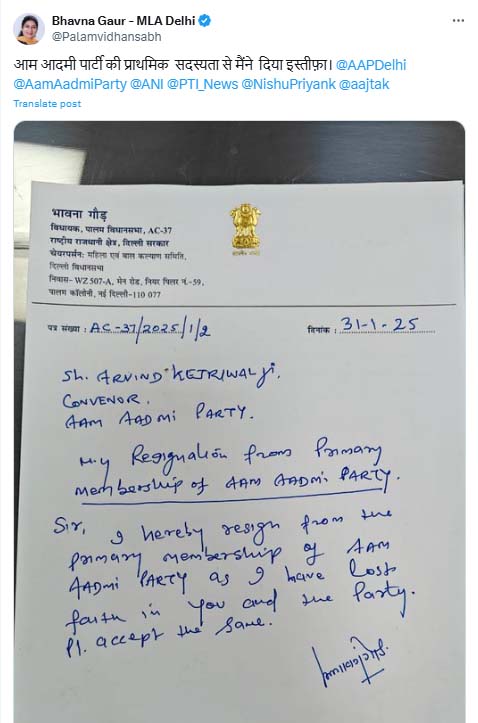 Bhavna Gaur - MLA Delhi
@Palamvidhansabh
आम आदमी पार्टी की प्राथमिक सदस्यता से मैंने दिया इस्तीफ़ा। @AAPDelhi
@AamAadmiParty @ANI @PTI_News @NishuPriyank @aajtak
Translate post
भावना गौड़
विधायक, पालम विधानसभा, AC-37
राष्ट्रीय राजधानी क्षेत्र, दिल्ली सरकार
चेयरपर्सन: महिला एवं बाल कल्याण समिति,
दिल्ली विधानसभा
निवास- WZ 507-A, मेन रोड, नियर पिलर नं.-59,
पालम कॉलोनी, नई दिल्ली-110 077
पत्र संख्या : AC-37/2025/1/2
दिनांक : 31-1-25
Sh. ARVIND KEJRIWAL Ji.
CONVENOR.
AAM AADMI PARTY.
My Resignation from Primary
membership of AAM AADMI PARTY.
Sir, I hereby resign from the
primary membership of AAM
AADMI PARTY as I have lost
faith in you and the Party.
Pl. accept the same.